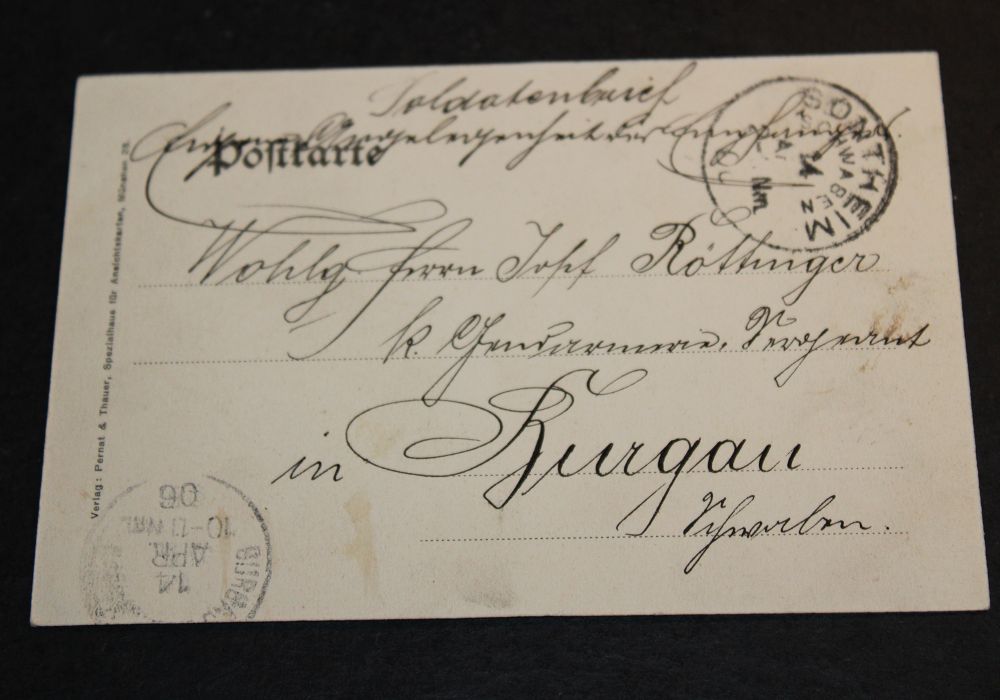 Soldatenbrief
Eigene Angelegenheit des Empfängers.
Postkarte
SONTHEIM
SCHWABEN
14
Nm.
06
Wohlg. Herrn Josef Röttinger
k. Gendarmerie, Sergeant
in Burgau
Schwaben.
Verlag: Pernat & Thauer, Spezialhaus für Ansichtskarten, München 28.
BURGAU
14
APR.
10-11 Nm.
06